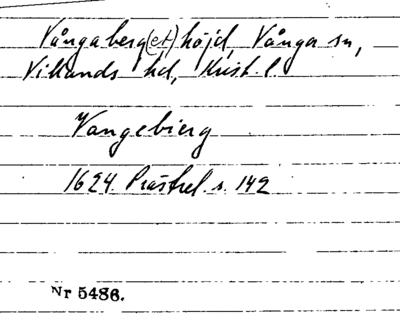 Vångaberg(et) höjd, Vånga sn,
Villands hd, Krist. l.
Vangebierg
1624. Prästrel. s. 142
Nr 5486.